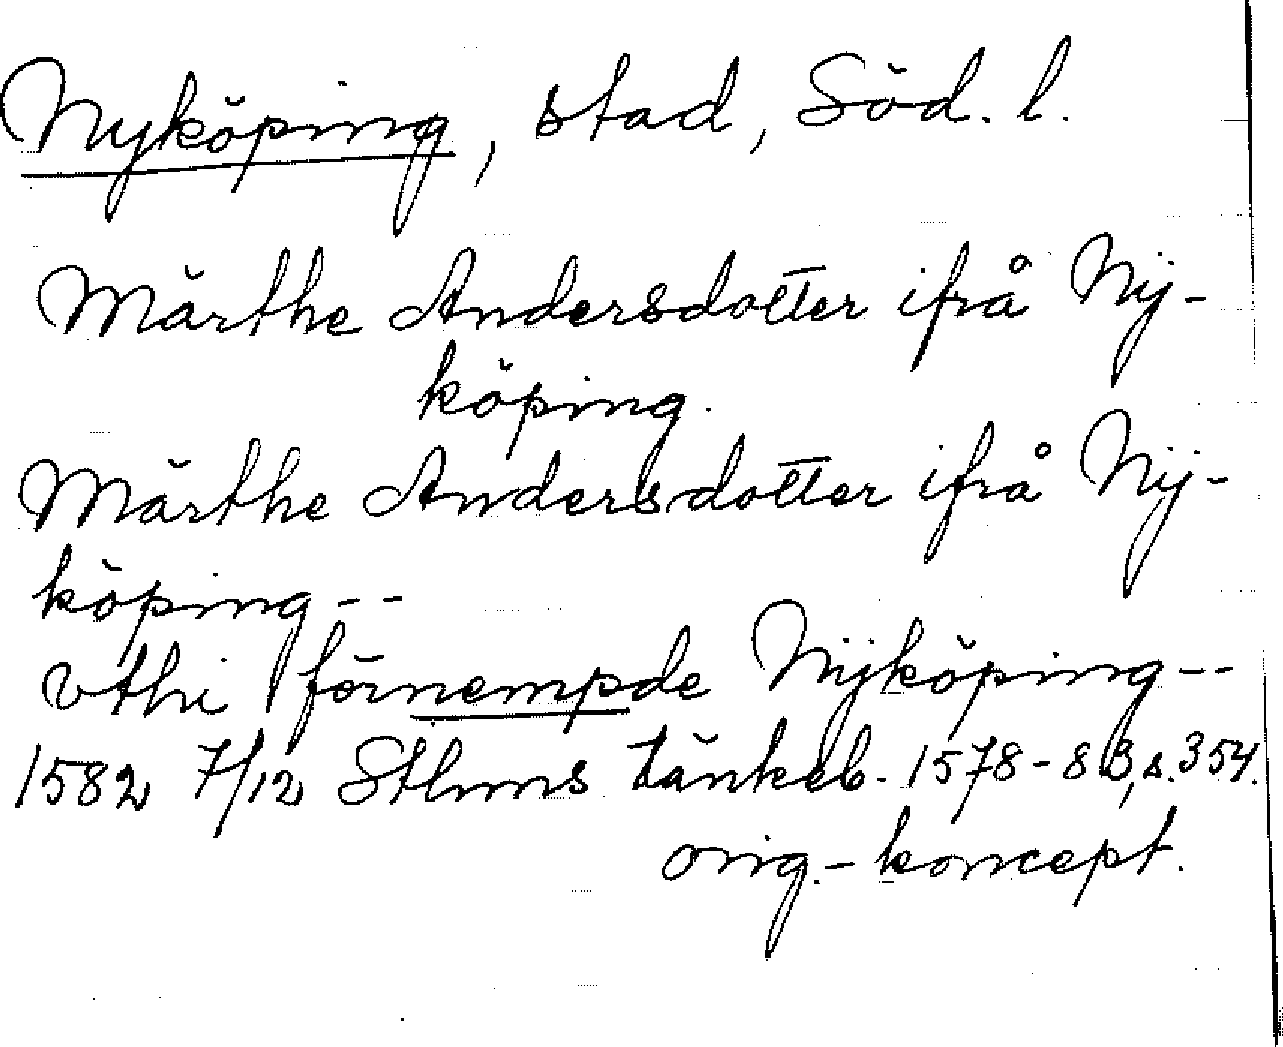 Nyköping, stad, Söd. l.
Märthe Andersdotter ifrå Nÿ-
köping.
Märthe Andersdotter ifrå Nÿ-
köping--
vthi förnempde Nÿköping--
1582 7/12 Sthms tänkeb. 1578-83, s. 354.
orig.-koncept.